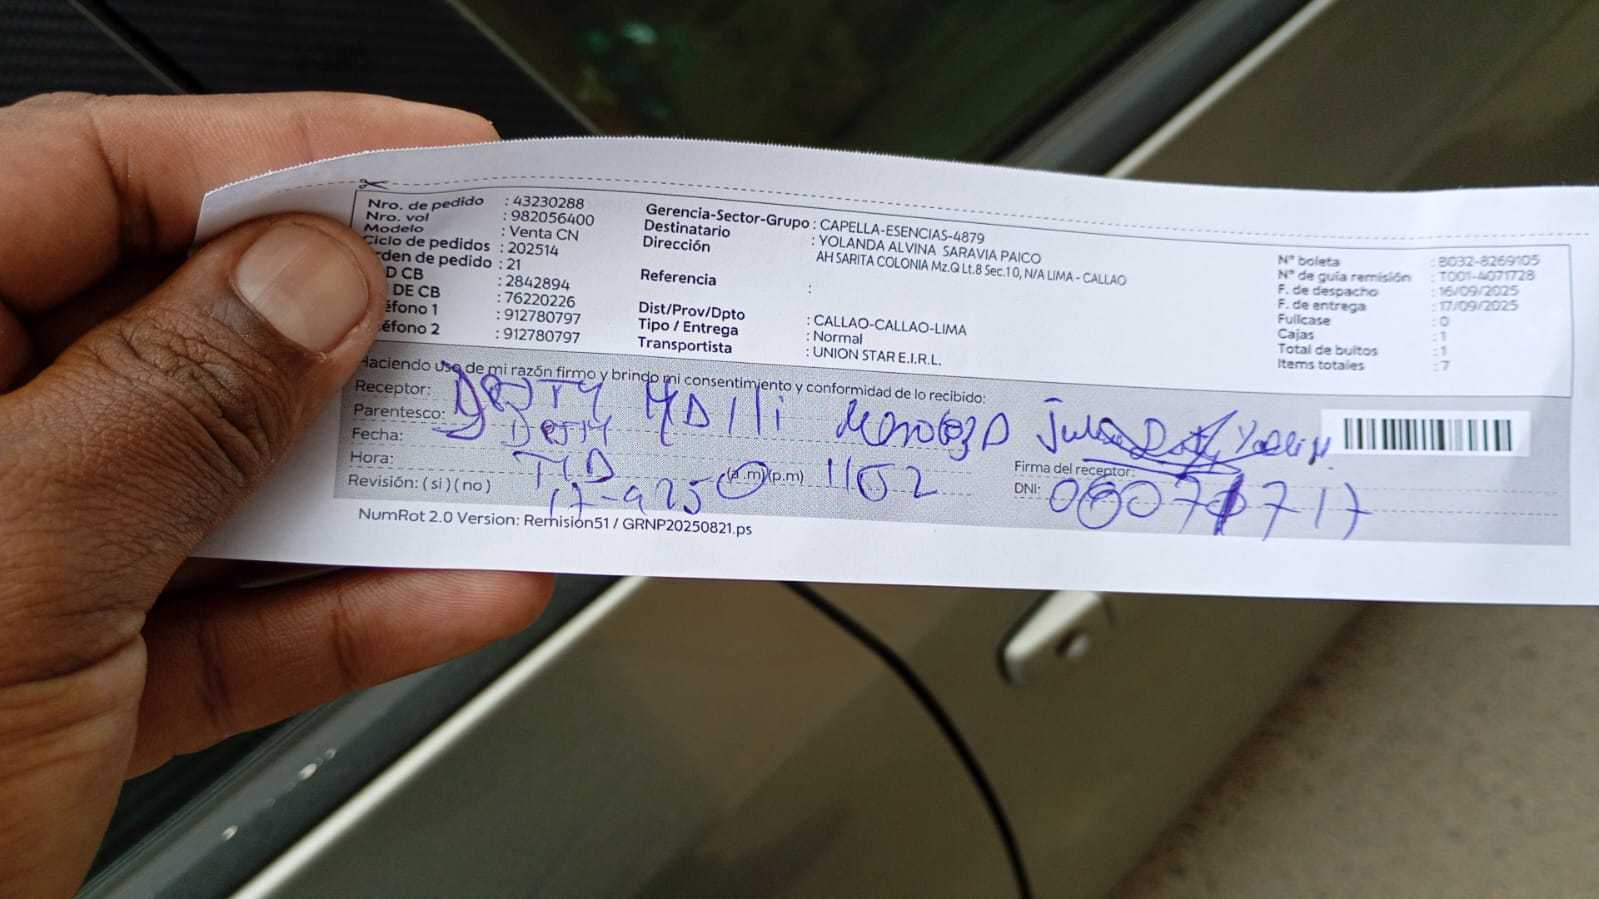 Nro. de pedido : 43230288
Nro. vol : 982056400
Modelo : Venta CN
Ciclo de pedidos : 202514
rden de pedido : 21
D CB : 2842894
DE CB : 76220226
éfono 1 : 912780797
éfono 2 : 912780797
Gerencia-Sector-Grupo : CAPELLA-ESENCIAS-4879
Destinatario : YOLANDA ALVINA SARAVIA PAICO
Dirección AH SARITA COLONIA Mz.Q Lt.8 Sec.10, N/A LIMA - CALLAO
Referencia :
Dist/Prov/Dpto : CALLAO-CALLAO-LIMA
Tipo / Entrega : Normal
Transportista : UNION STAR E.I.R.L.
N° boleta : B032-8269105
N° de guía remisión : T001-4071728
F. de despacho : 16/09/2025
F. de entrega : 17/09/2025
Fullcase : 0
Cajas : 1
Total de bultos : 1
Items totales : 7
Haciendo uso de mi razón firmo y brindo mi consentimiento y conformidad de lo recibido:
Receptor:
Parentesco:
Fecha:
Hora: (a.m)(p.m) 1102
Revisión: ( si ) ( no )
Firma del receptor:
DNI:
NumRot 2.0 Version: Remision51 / GRNP20250821.ps